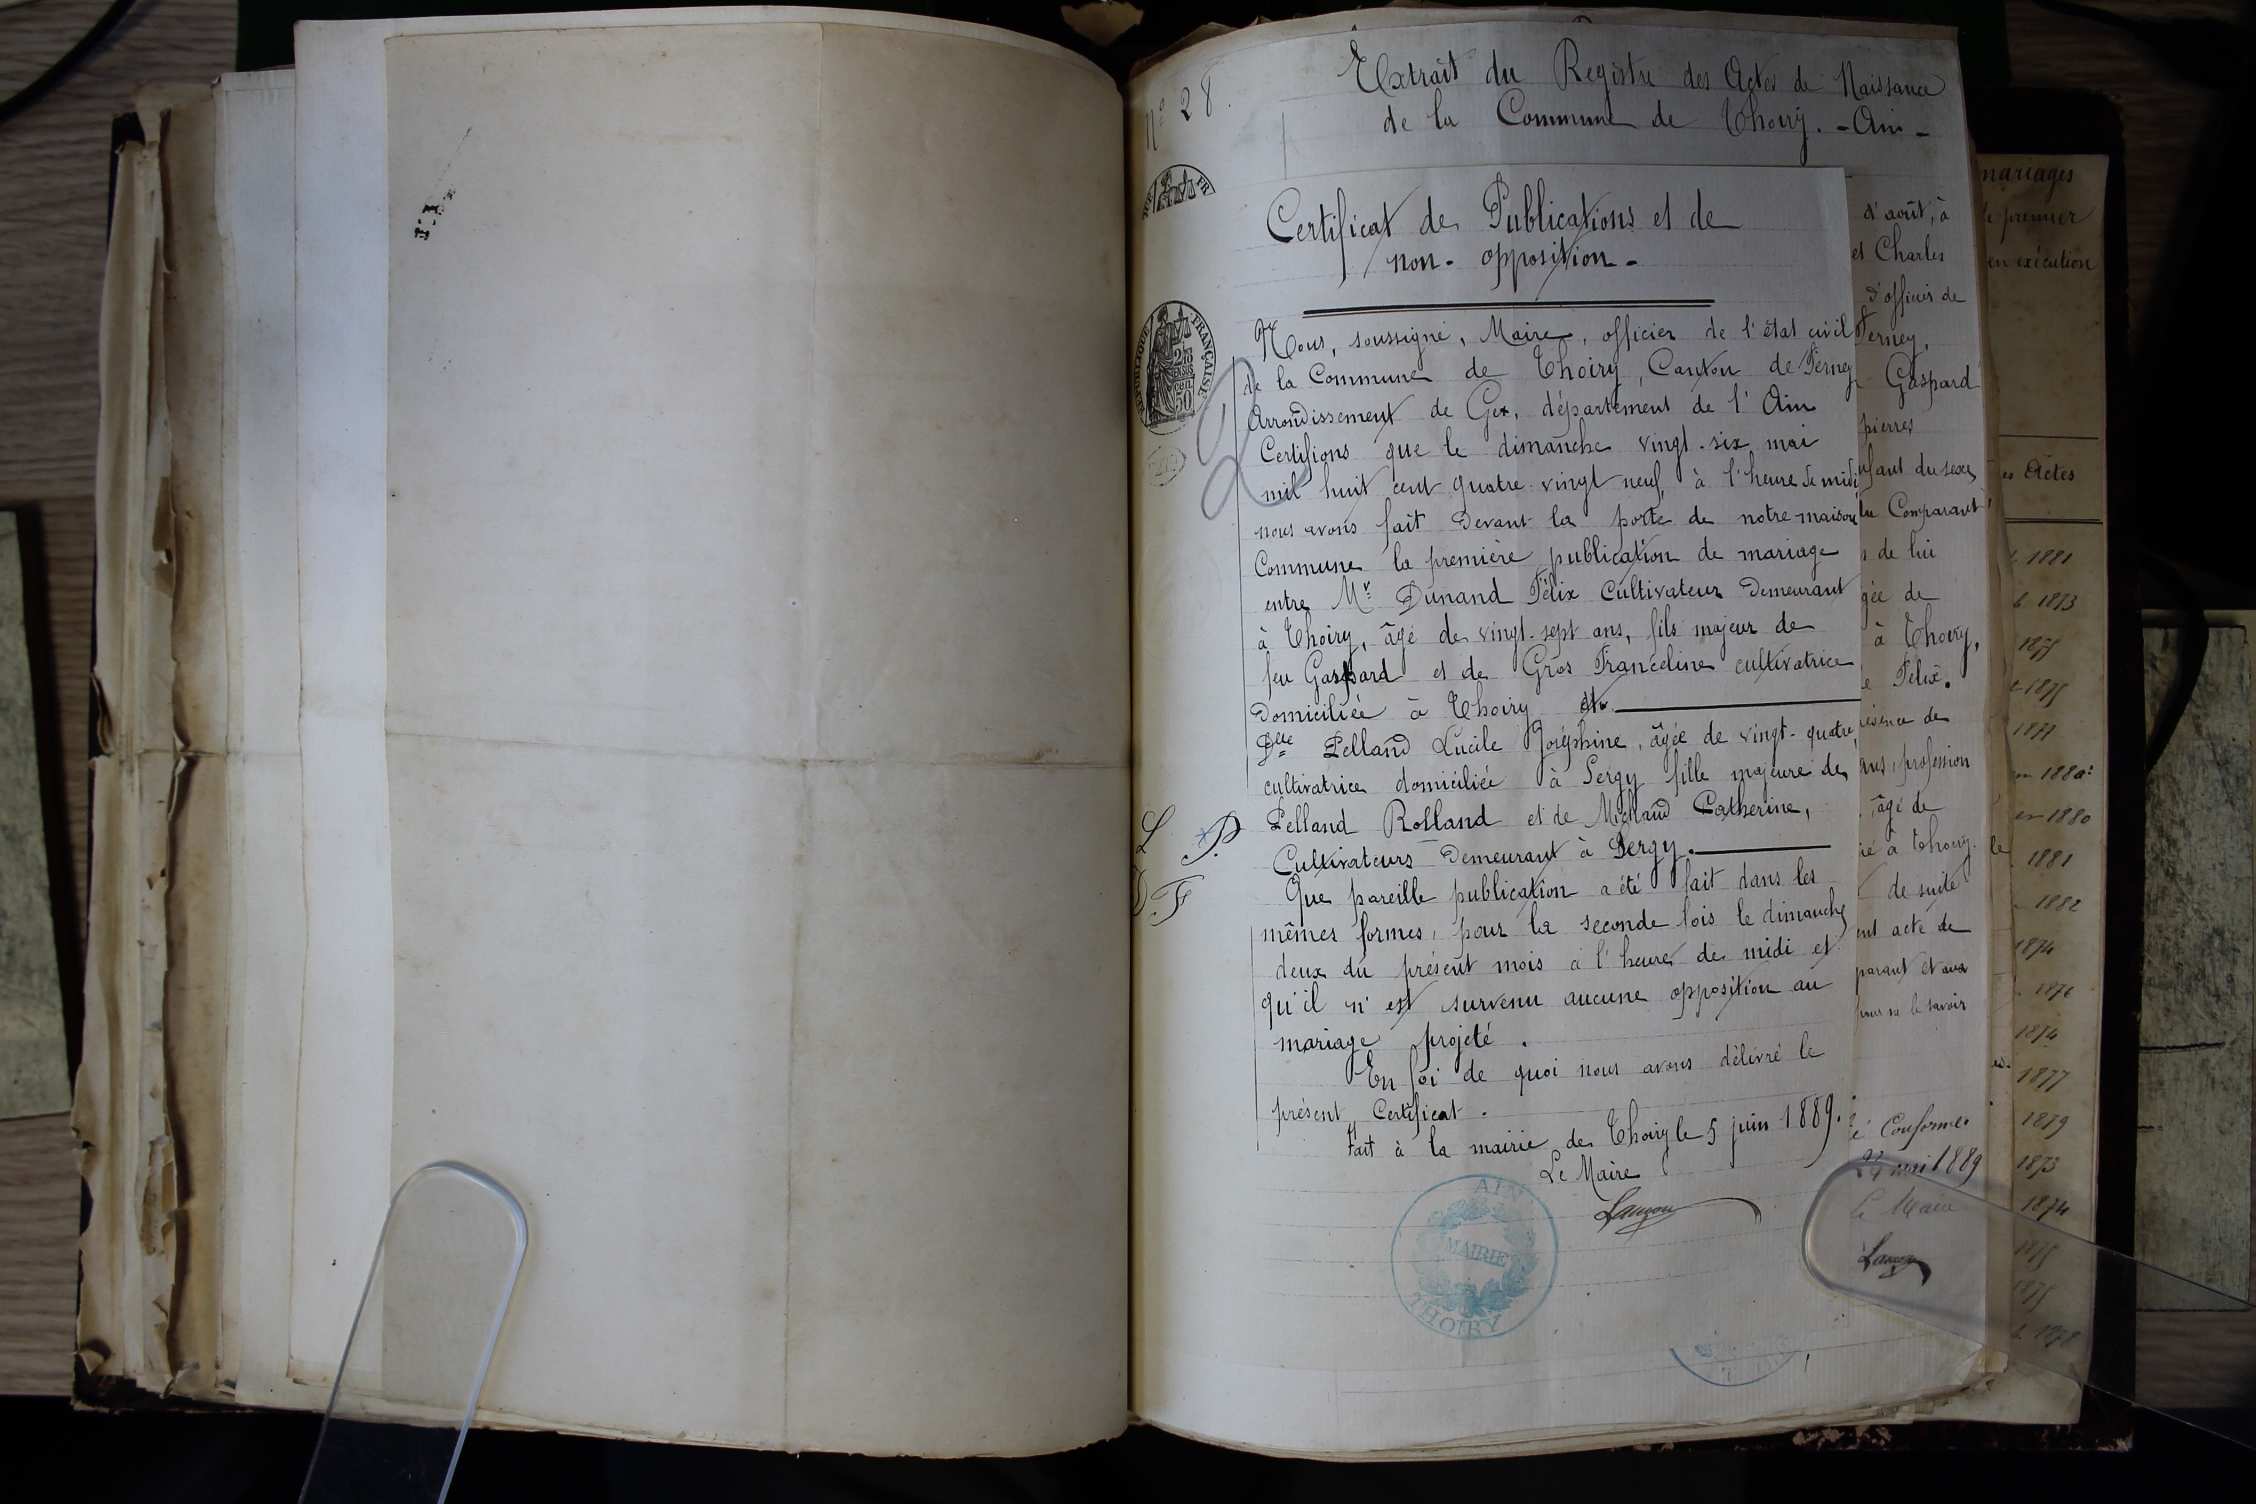 Extrait du Registre des Actes de Naissance
de la Commune de Thoiry. - Ain -
N° 28.
Certificat de Publications et de
non-opposition -
Nous, soussigné, Maire, officier de l'état civil
de la Commune de Thoiry, Canton de Ferney
Arrondissement de Gex, département de l'Ain
Certifions que le dimanche vingt-six mai
mil huit cent quatre-vingt neuf, à l'heure de midi
nous avons fait devant la porte de notre maison
Commune la première publication de mariage
entre Mr Dunand Félix Cultivateur Demeurant
à Thoiry, âgé de vingt-sept ans, fils majeur de
feu Gaspard et de Gros Franceline cultivatrice
domiciliée à Thoiry et
Dlle Pelland Lucile Joséphine, âgée de vingt-quatre,
cultivatrice domiciliée à Sergy fille majeure de
Pelland Rolland et de Michaud Catherine,
Cultivateurs Demeurant à Sergy.
Que pareille publication a été fait dans les
mêmes formes, pour la seconde fois le dimanche
deux du présent mois à l'heure de midi et
qu'il n'est survenu aucune opposition au
mariage projeté.
En foi de quoi nous avons délivré le
présent Certificat.
Fait à la mairie de Thoiry le 5 juin 1889.
Le Maire
Lançon
AIN
MAIRIE
THOIRY
RÉPUBLIQUE FRANÇAISE
50
L P.
D F
d'août, à
et Charles
d'officier de
Ferney,
Gaspard
pierres
enfant du sexe
du Comparant
de lui
âgée de
à Thoiry,
Félix.
présence de
profession
, âgé de
à Thoiry.
de suite
acte de
parant et
le savoir
Conforme.
24 mai 1889
Le Maire
Lançon
mariages
le premier
en exécution
Actes
1881
1873
1875
1875
1877
1880
en 1880
1881
1882
1874
1876
1874
1877
1879
1873
1874
1875
1875
1878